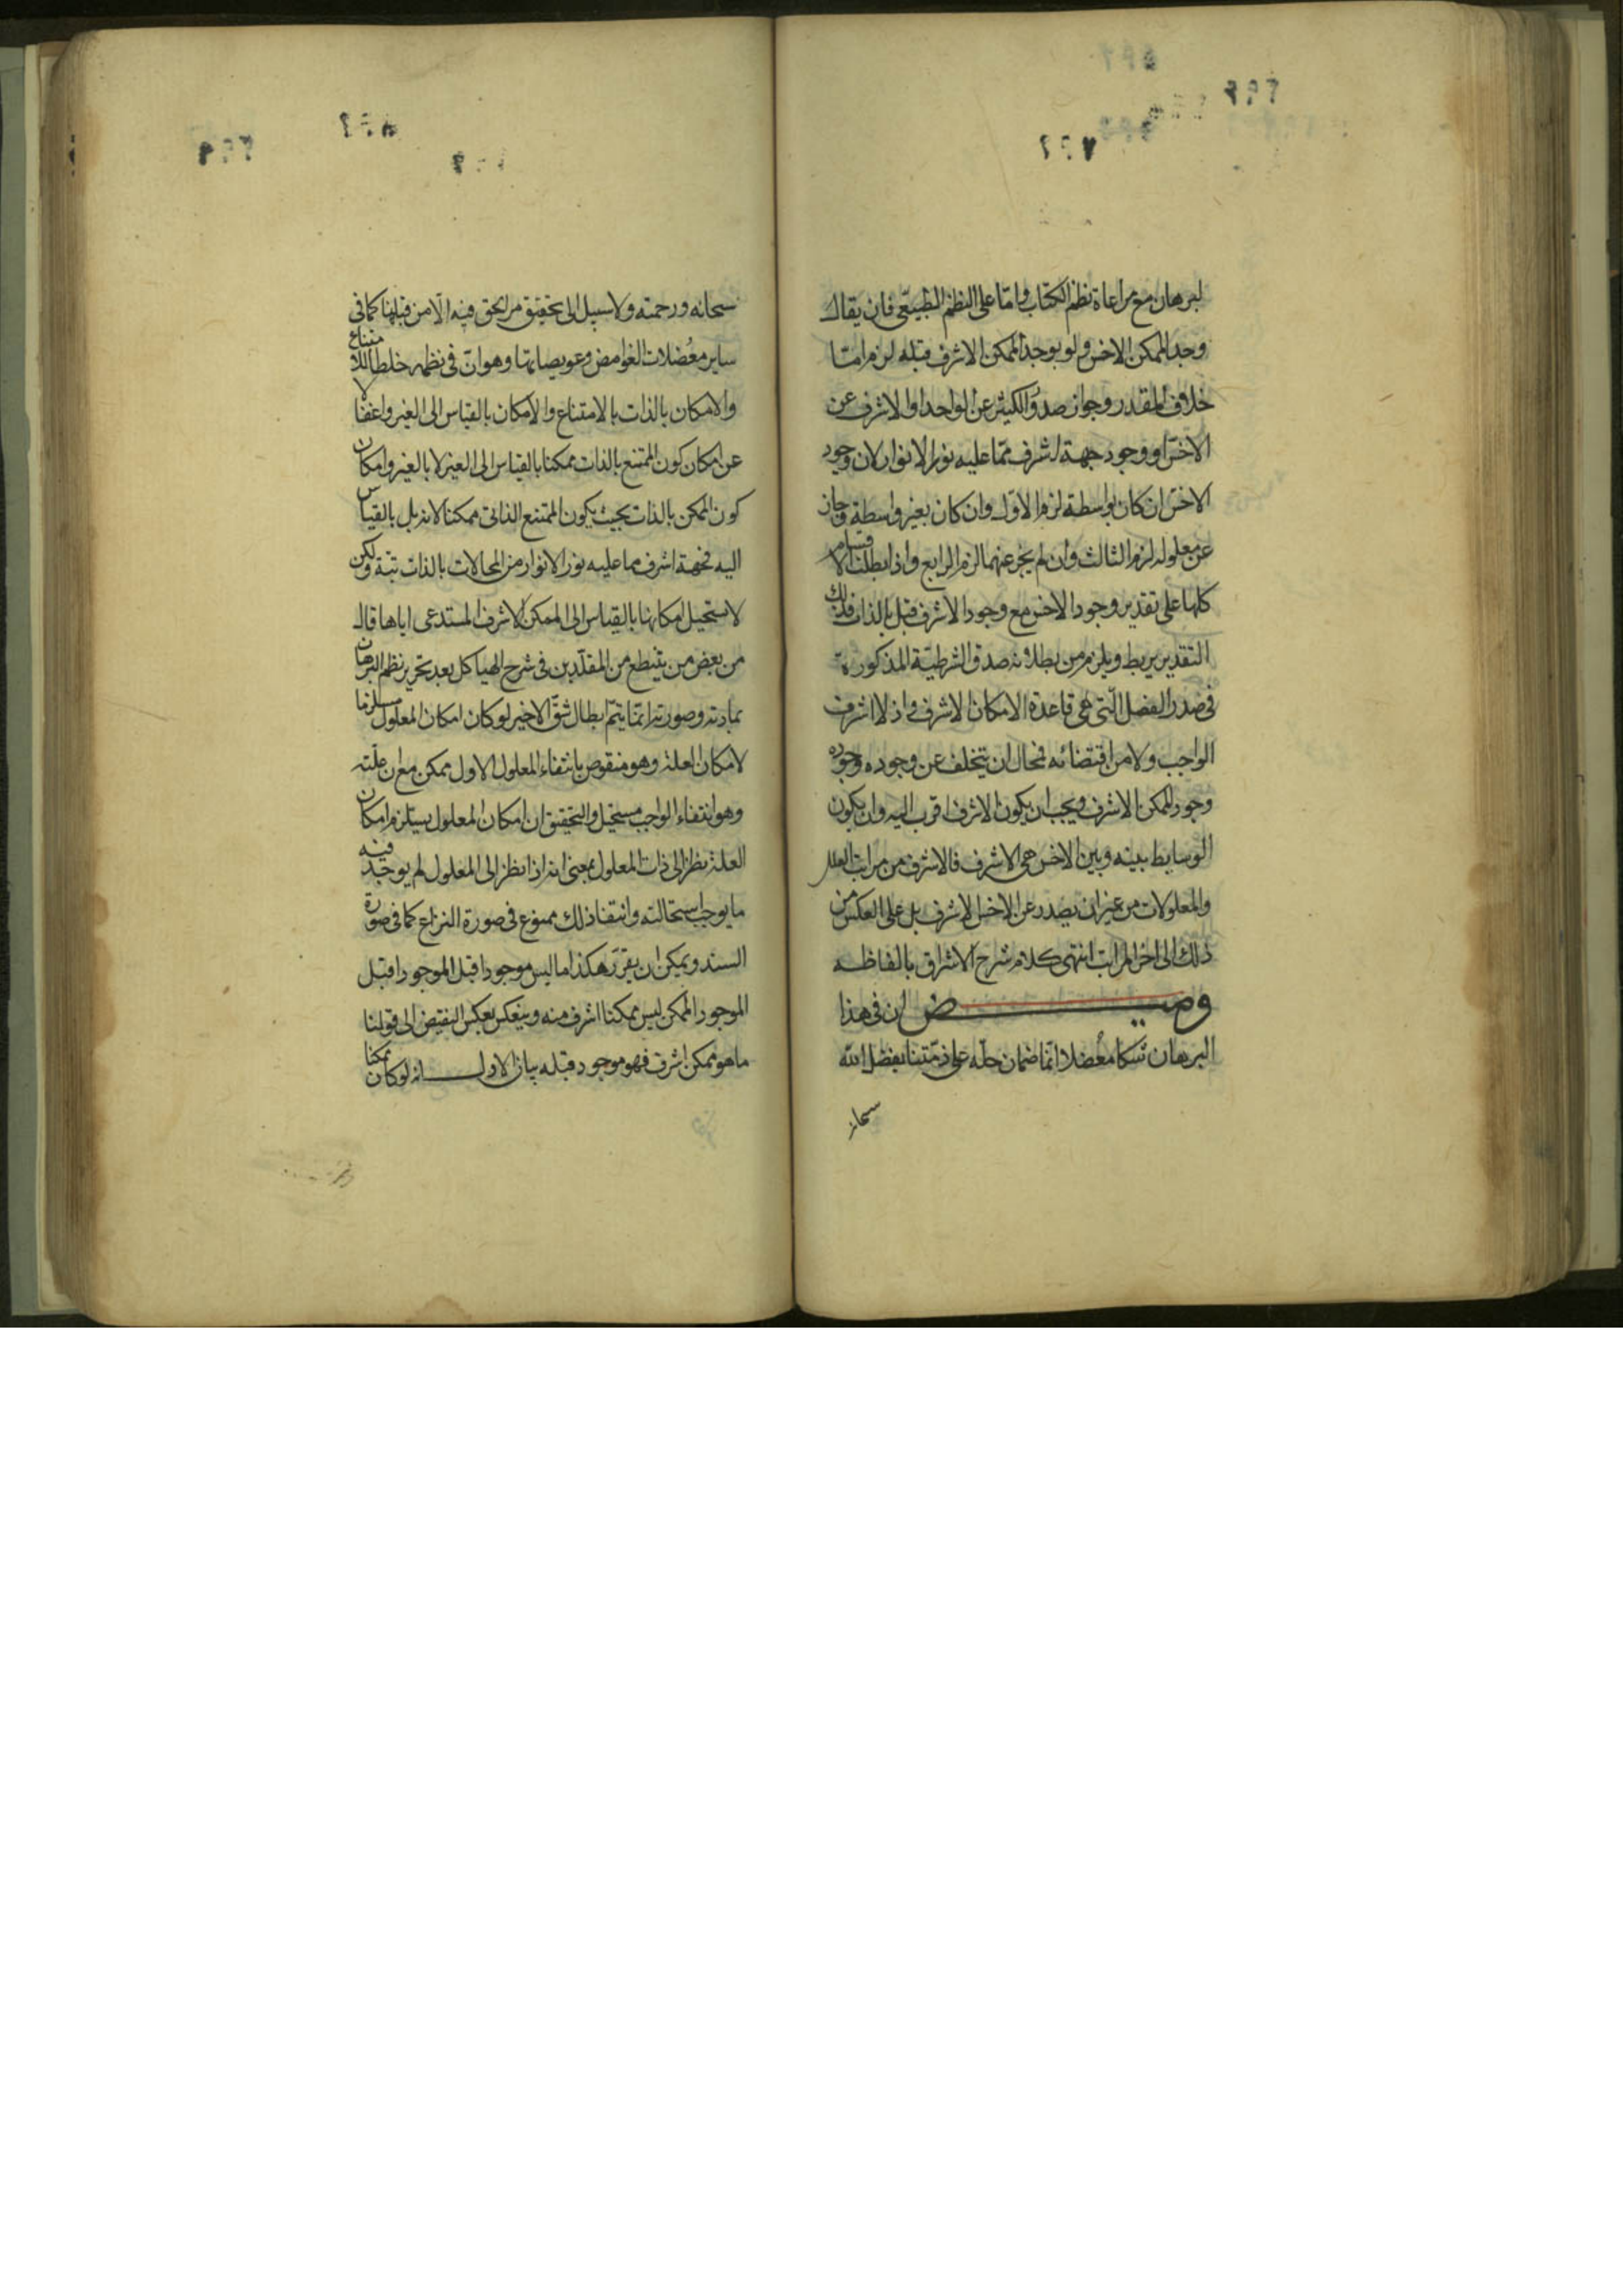 لبرهان مع مراعاة نظم الكتاب واما على النظم الطبيعى فان يقال
وجد الممكن الاخس ولو يوجد الممكن الاشرف قبله لزم امّا
خلاف المقدر وجواز صدور الكثير عن الواحد او الاشرف عن
الاخسّ او وجود جهة اشرف ممّا عليه نور الانوار لان وجود
الاخسّ ان كان بواسطة لزم الاوّل وان كان بغير واسطة وجاز
عن معلوله لزم الثالث وان لم يجز عنهما لزم الرابع واذا بطلت الاقسام
كلها على تقدير وجود الاخس مع وجود الاشرف قبل بالذات فذلك
التقدير يربط ويلزم من بطلانه صدق الشرطيّة المذكورة
فى صدر الفصل الّتى هى قاعدة الامكان الاشرف واذ لا اشرف
الواجب ولا من اقتضائه فمحال ان يتخلف عن وجوده وجود
وجود الممكن الاشرف ويجب ان يكون الاشرف اقرب اليه وان يكون
الوسايط بينه وبين الاخس هى الاشرف فالاشرف من مراتب العلل
والمعلولات من غير ان يصدر عن الاخس الاشرف بل على العكس من
ذلك الى اخر المراتب انتهى كلام شرح الاشراق بالفاظه
وميــــض ان فى هذا
البرهان شكا معُضلا انّما ضمان حلّه على ذمّتنا بفضل الله
سبحانه
سبحانه ورحمته ولا سبيل الى تحقيق مرّ الحق فيه الّا من قبلنا كما فى
ساير معُضلات الغوامض وعويصاتها وهو انّ فى نظمه خلطا للامتناع
والامكان بالذات بالامتناع والامكان بالقياس الى الغير واغفالا
عن امكان كون الممتنع بالذات ممكنا بالقياس الى الغير لا بالغير وامكان
كون الممكن بالذات بحيث يكون الممتنع الذاتى ممكنا لا به بل بالقياس
اليه فجهة اشرف مما عليه نور الانوار من المحالات بالذات بتة ولكن
لا ستحيل امكانها بالقياس الى الممكن الاشرف المستدعى اياها قال
من بعض من يتنطع من المقلّدين فى شرح الهياكل بعد تحرير نظم البرهان
بمادته وصورته انمّا يتمّ ابطال شقّ الاخير لو كان امكان المعلول مستلزما
لامكان العلة وهو منقوض بانتفاء المعلول الاول ممكن مع ان علّته
وهو انتفاء الواجب مستحيل والتحقيق ان امكان المعلول يستلزم امكان
العلة نظرا الى ذات المعلول بمعنى انه اذا نظر الى المعلول لم يوجد فيه
ما يوجب استحالته وانتفا ذلك ممنوع فى صورة النزاع كما فى صورة
السند ويمكن ان يقرّر هكذا ما ليس موجودا قبل الموجود اقبل
الموجود الممكن ليس ممكنا اشرف منه وينعكس بعكس النقيض الى قولنا
ما هو ممكن اشرف فهو موجود قبله بيان الاول انه لو كان ممكنا